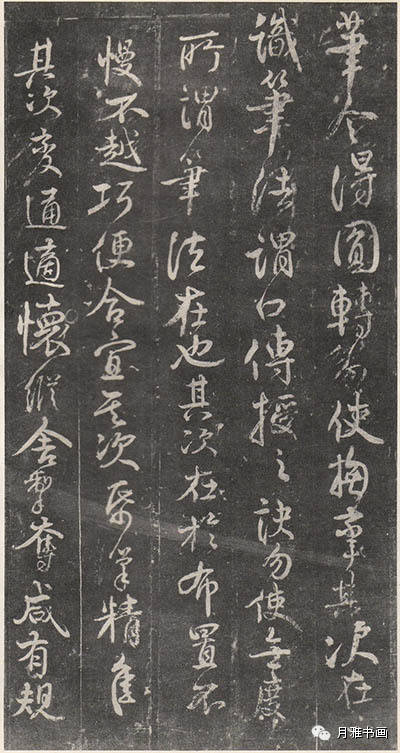 筆令得圓轉勿使拘攣其次在
識筆法謂口傳授之訣勿使無度
所謂筆法在也其次在於布置不
慢不越巧便合宜其次紙筆精佳
其次變通適懷縱舍掣奪咸有規
月雅书画